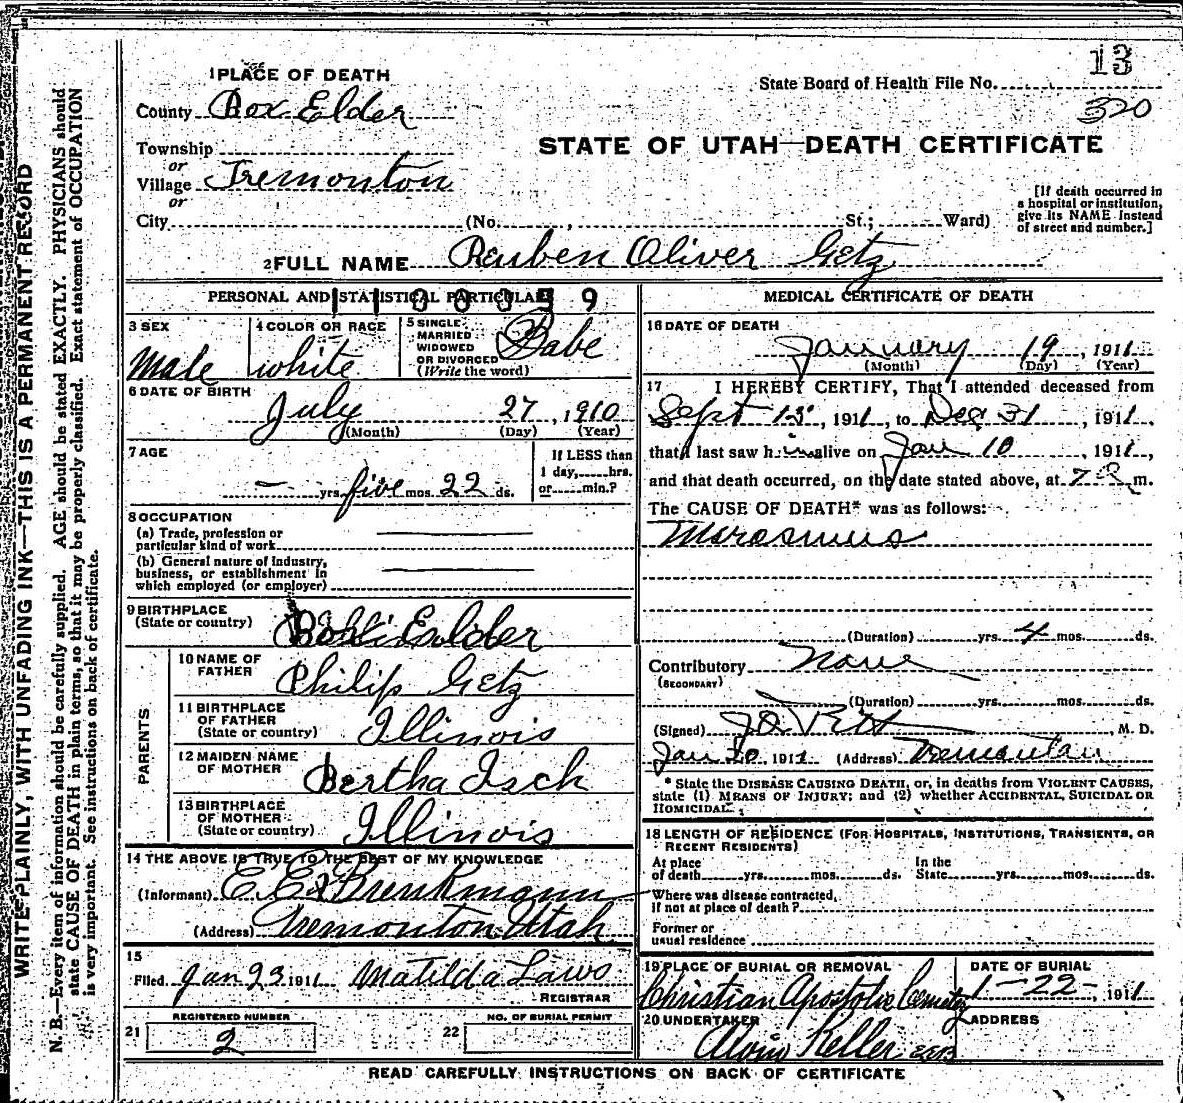 13
State Board of Health File No.
320
1 PLACE OF DEATH
County Box Elder
STATE OF UTAH—DEATH CERTIFICATE
Township
or
Village Tremonton
or
City (No. , St.; Ward)
[If death occurred in
a hospital or institution,
give its NAME instead
of street and number.]
2 FULL NAME Reuben Oliver Getz
PERSONAL AND STATISTICAL PARTICULARS
3 SEX
Male
4 COLOR OR RACE
white
5 SINGLE
MARRIED
WIDOWED
OR DIVORCED
(Write the word)
Babe
6 DATE OF BIRTH
July 27, 1910
(Month) (Day) (Year)
7 AGE
— yrs. five mos. 22 ds.
If LESS than
1 day, hrs.
or min.?
8 OCCUPATION
(a) Trade, profession or
particular kind of work
(b) General nature of industry,
business, or establishment in
which employed (or employer)
9 BIRTHPLACE
(State or country)
Elder
PARENTS
10 NAME OF
FATHER
Philip Getz
11 BIRTHPLACE
OF FATHER
(State or country)
Illinois
12 MAIDEN NAME
OF MOTHER
Bertha Isch
13 BIRTHPLACE
OF MOTHER
(State or country)
Illinois
14 THE ABOVE IS TRUE TO THE BEST OF MY KNOWLEDGE
(Informant) E. E. Brenkmann
(Address) Tremonton Utah
15
Filed Jan 23 1911 Matilda Laws
REGISTRAR
REGISTERED NUMBER
21 2
NO. OF BURIAL PERMIT
22
MEDICAL CERTIFICATE OF DEATH
16 DATE OF DEATH
January 19, 1911
(Month) (Day) (Year)
17 I HEREBY CERTIFY, That I attended deceased from
Sept 15, 1911, to Dec 31, 1911,
that I last saw him alive on Jan 10, 1911,
and that death occurred, on the date stated above, at 7 m.
The CAUSE OF DEATH* was as follows:
Marasmus
(Duration) yrs. 4 mos. ds.
Contributory None
(SECONDARY)
(Duration) yrs. mos. ds.
(Signed) M. D.
Jan 20 1911 (Address) Tremonton
* State the DISEASE CAUSING DEATH, or, in deaths from VIOLENT CAUSES,
state (1) MEANS OF INJURY; and (2) whether ACCIDENTAL, SUICIDAL OR
HOMICIDAL.
18 LENGTH OF RESIDENCE (FOR HOSPITALS, INSTITUTIONS, TRANSIENTS, OR
RECENT RESIDENTS)
At place
of death yrs. mos. ds.
In the
State yrs. mos. ds.
Where was disease contracted,
if not at place of death?
Former or
usual residence
19 PLACE OF BURIAL OR REMOVAL
Christian Apostolic Cemetry
DATE OF BURIAL
1—22—, 1911
20 UNDERTAKER
Alvin Keller
ADDRESS
READ CAREFULLY INSTRUCTIONS ON BACK OF CERTIFICATE
WRITE PLAINLY, WITH UNFADING INK—THIS IS A PERMANENT RECORD
N. B.—Every item of information should be carefully supplied. AGE should be stated EXACTLY. PHYSICIANS should
state CAUSE OF DEATH in plain terms, so that it may be properly classified. Exact statement of OCCUPATION
is very important. See instructions on back of certificate.